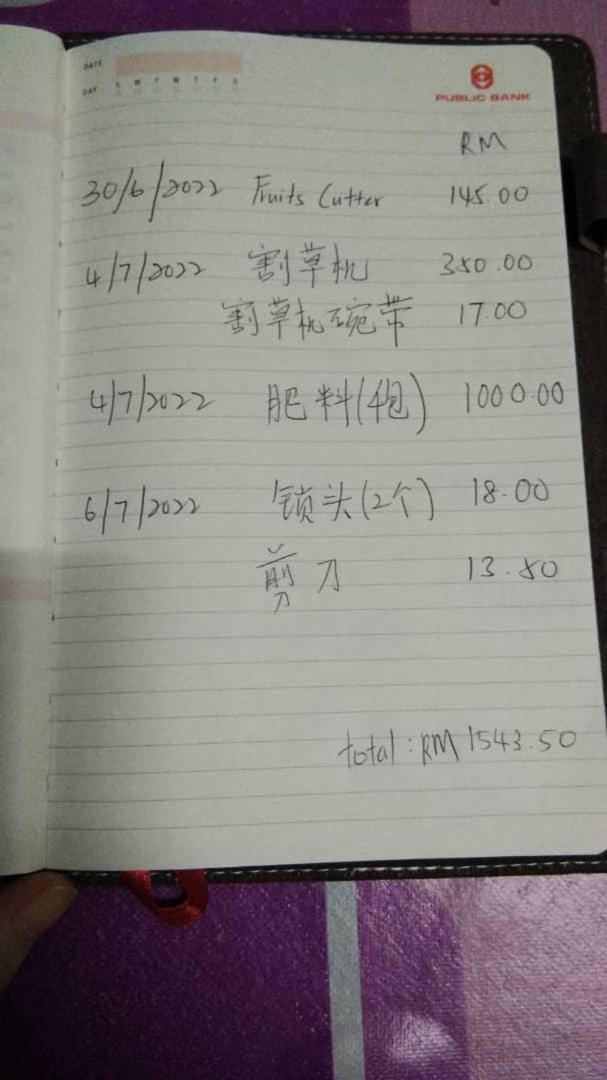 DATE
DAY S M T W T F S
PUBLIC BANK
RM
30/6/2022 Fruits Cutter 145.00
4/7/2022 割草机 350.00
割草机碗带 17.00
4/7/2022 肥料(4包) 1000.00
6/7/2022 锁头(2个) 18.00
剪刀 13.50
total: RM 1543.50